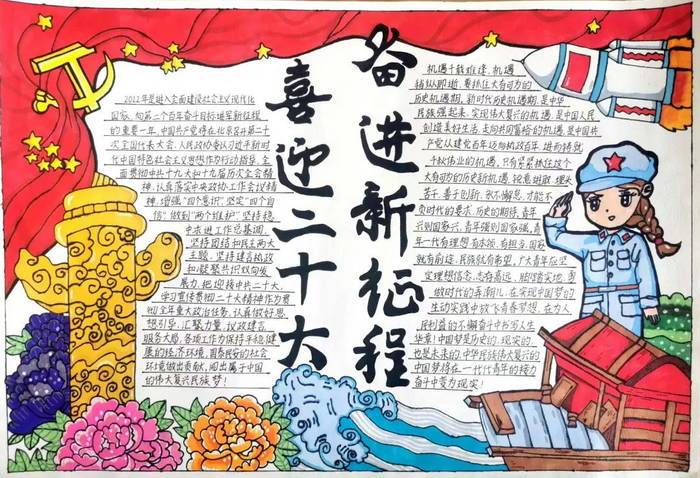 喜迎二十大
奋进新征程
2022年是进入全面建设社会主义现代化
国家、向第二个百年奋斗目标进军新征程
的重要一年,中国共产党将在北京召开第二十
次全国代表大会,人民政协要以习近平新时
代中国特色社会主义思想作为行动指导,全
面贯彻中共十九大和十九届历次全会精
神,认真落实中央政协工作会议精
神,增强"四个意识"坚定"四个自
信"做到"两个维护"坚持稳
中求进工作总基调,
坚持团结和民主两大
主题,坚持建言资政
和凝聚共识双向发
展力,把迎接中共二十大、
学习宣传贯彻二十大精神作为贯
彻全年重大政治任务,认真做好思
想引导、汇聚力量、议政建言、
服务大局,各项工作为保持平稳健
康的经济环境,国泰民安的社会
环境做出贡献,闯出属于中国
的伟大复兴民族梦!
机遇千载难逢,机遇
稍纵即逝。要抓住大有可为的
历史机遇期,新时代历史机遇期,是中华
民族强起来、实现伟大复兴的机遇,是中国人民
创造美好生活、走向共同富裕的机遇,是中国共
产党从建党百年迈向执政百年、进而铸就
千秋伟业的机遇,只有紧紧抓住这个
大有可为的历史新机遇,锐意进取、埋头
苦干、善于创新、永不懈怠,才能不
负时代的要求、历史的期待,青年
兴则国家兴,青年强则国家强,青
年一代有理想、有本领、有担当,国家
就有前途,民族就有希望,广大青年应坚
定理想信念,志存高远,脚踏实地,勇
做时代的弄潮儿,在实现中国梦的
生动实践中放飞青春梦想,在为人
民利益的不懈奋斗中书写人生
华章!中国梦是历史的、现实的、
也是未来的,中华民族伟大复兴的
中国梦将在一代代青年的接力
奋斗中变为现实!